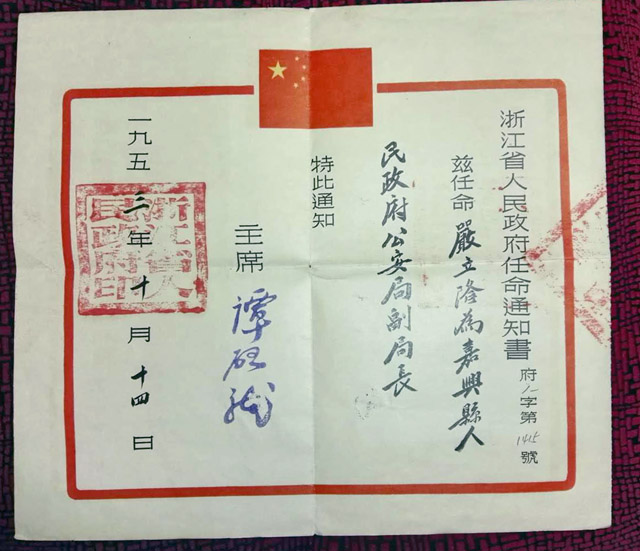 浙江省人民政府任命通知書
府人字第1415號
茲任命嚴立隆為嘉興縣人
民政府公安局副局長
特此通知
主席 譚啟龍
一九五三年十月十四日
浙江省人民政府印